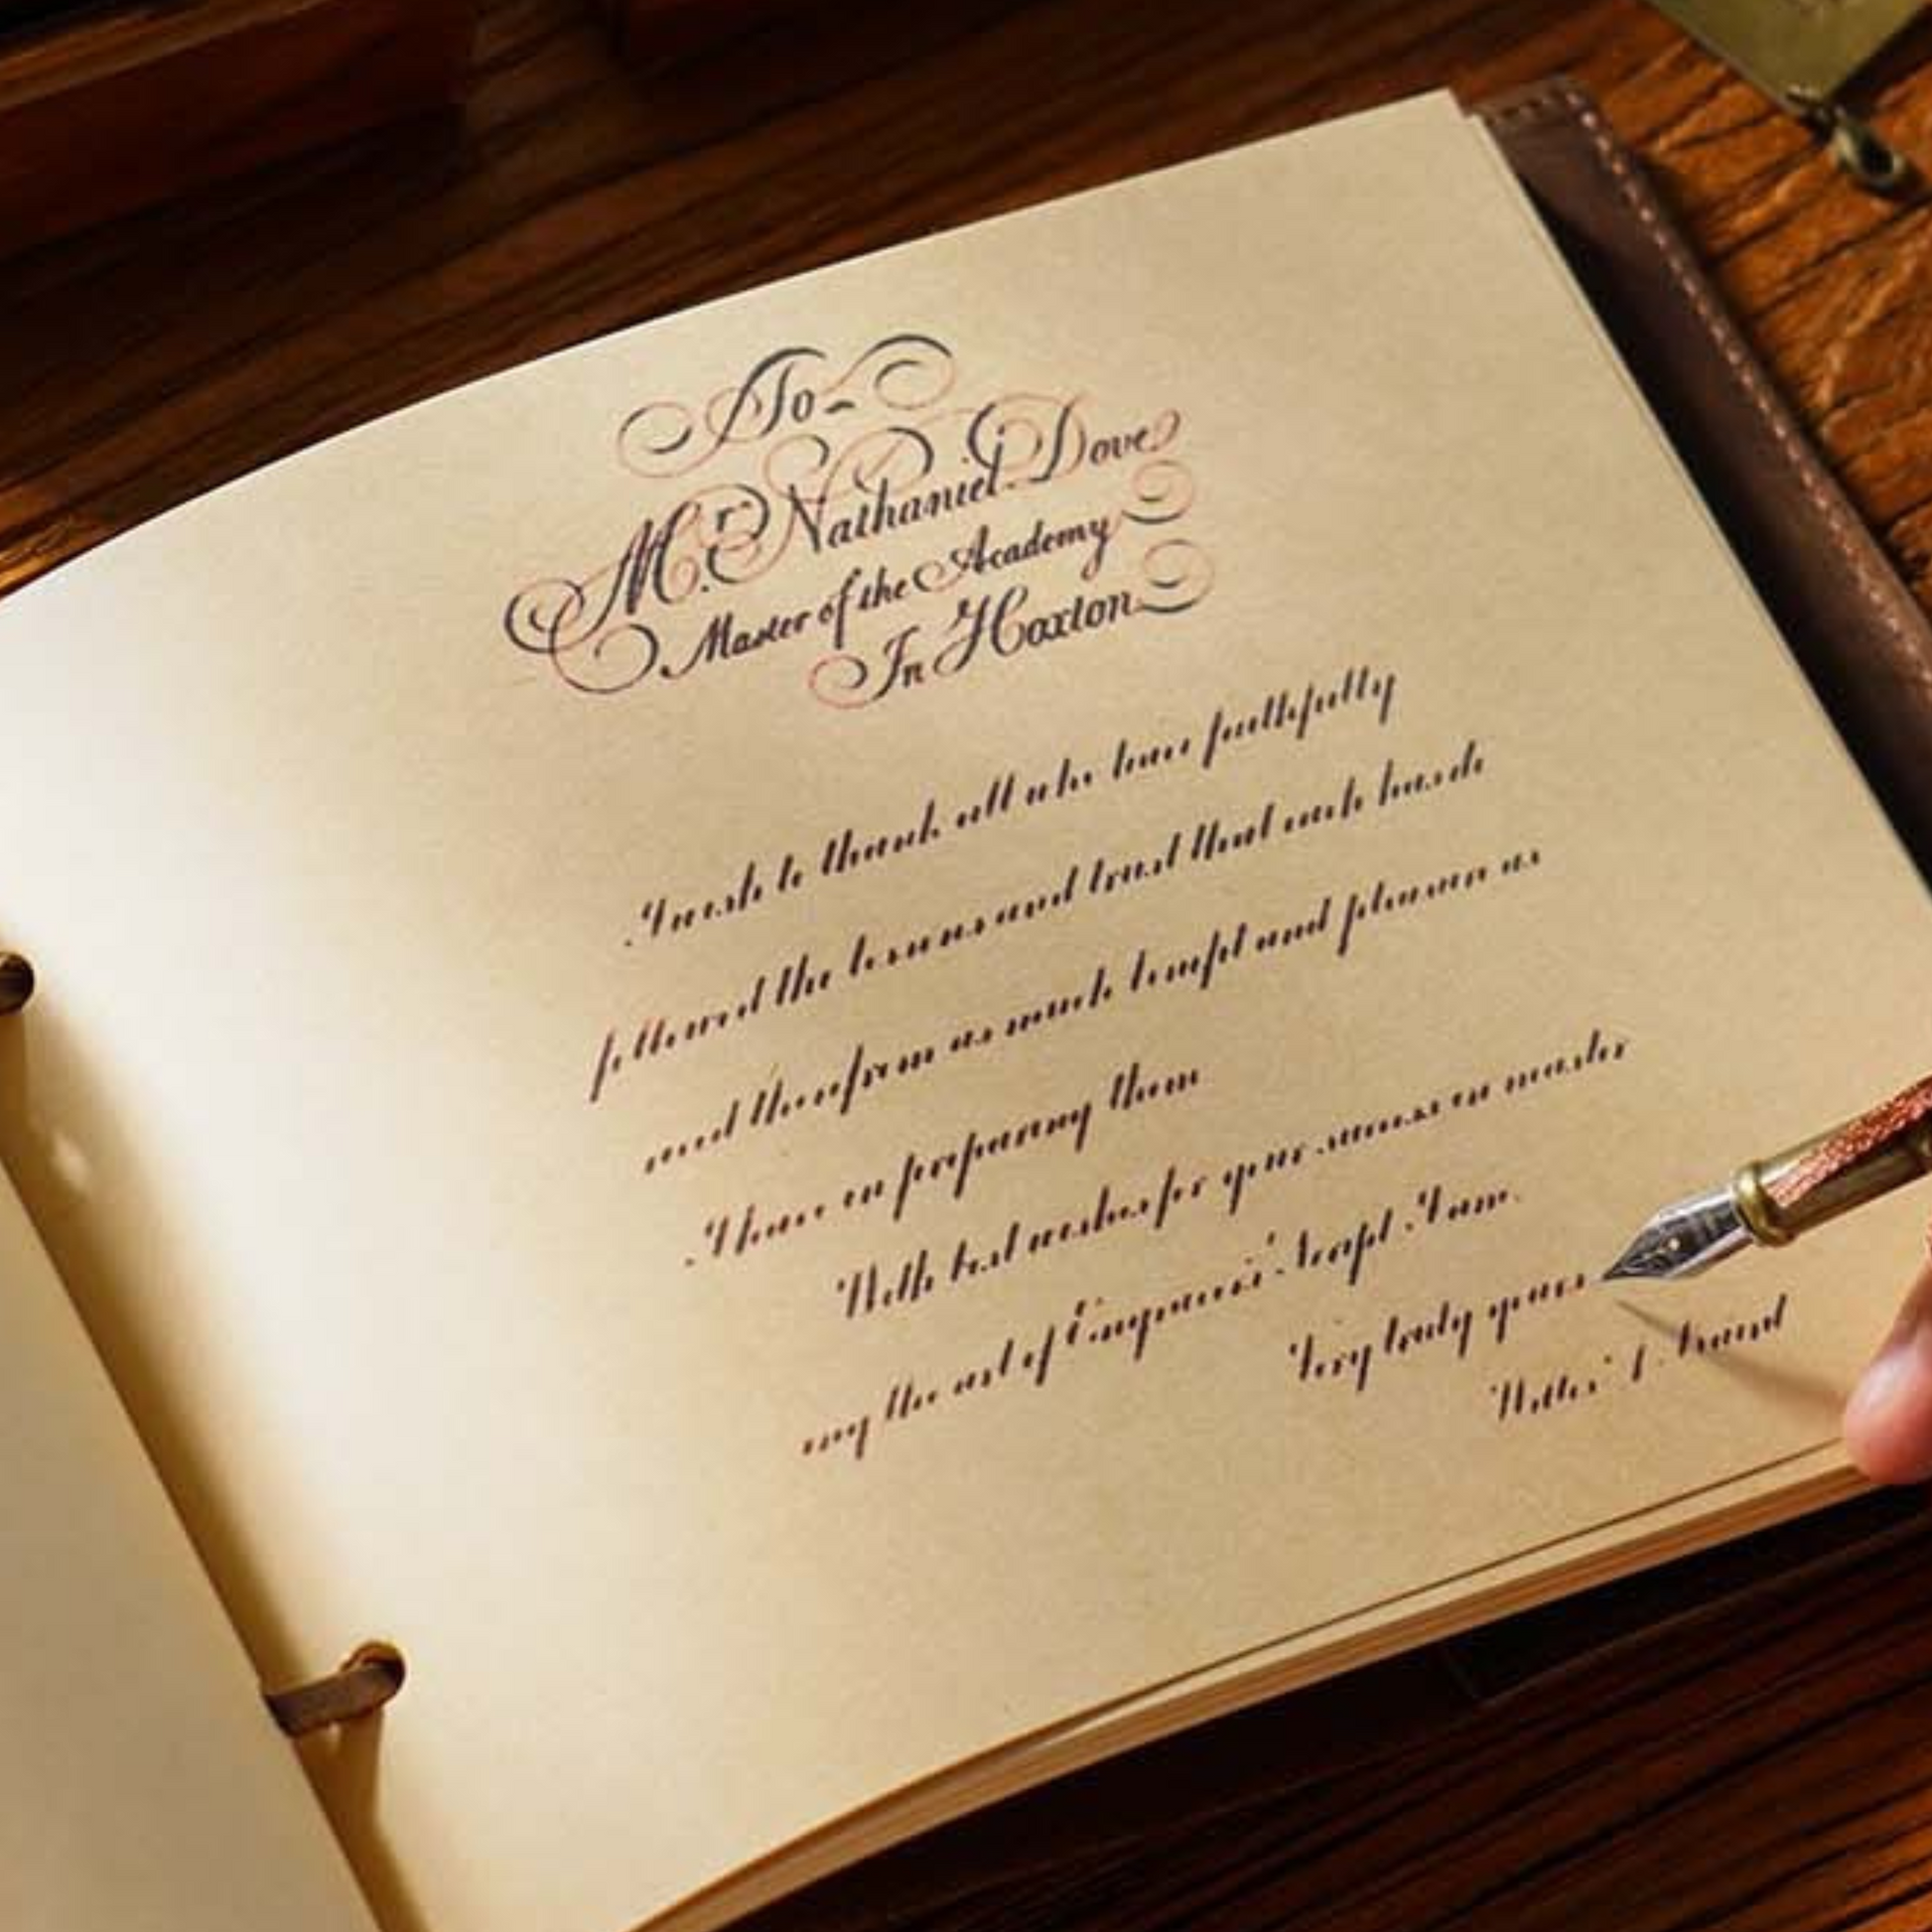 To
Mr. Nathaniel Dove
Master of the Academy
In Hoxton
I wish to thank all who have faithfully
followed the lessons and trust that each has
received therefrom as much benefit and pleasure as
I have in preparing them
With best wishes for your success in master
ing the art of Engravers' Script I am
Very truly yours